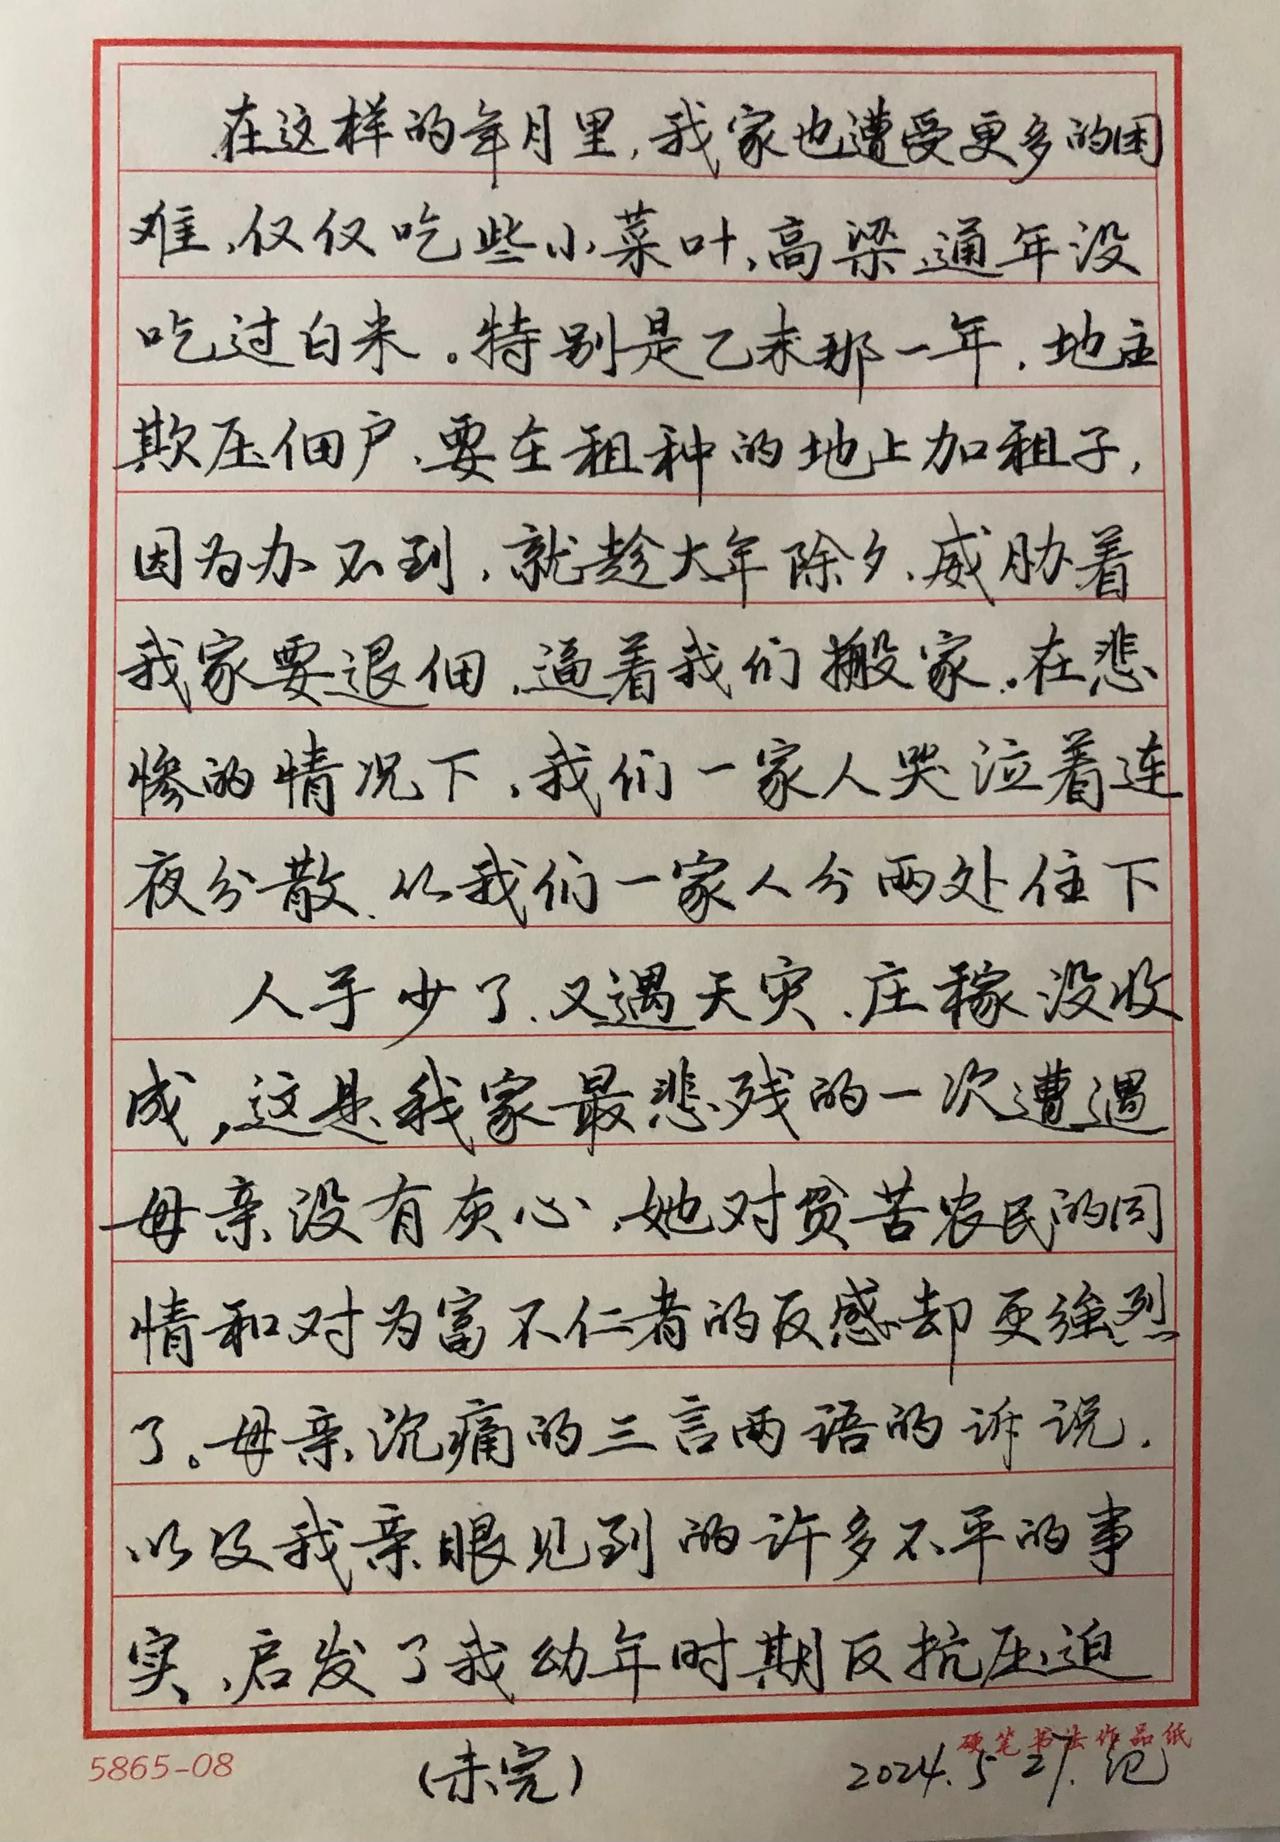 在这样的年月里,我家也遭受更多的困
难,仅仅吃些小菜叶,高梁,通年没
吃过白米。特别是乙未那一年,地主
欺压佃户,要在租种的地上加租子,
因为办不到,就趁大年除夕,威胁着
我家要退佃,逼着我们搬家。在悲
惨的情况下,我们一家人哭泣着连
夜分散,从我们一家人分两处住下
人手少了,又遇天灾,庄稼没收
成,这是我家最悲残的一次遭遇
母亲没有灰心,她对贫苦农民的同
情和对为富不仁者的反感却更強烈
了。母亲沉痛的三言两语的诉说,
以及我亲眼见到的许多不平的事
实,启发了我幼年时期反抗压迫
5865-08
硬笔书法作品纸
(未完)
2024.5 27.记